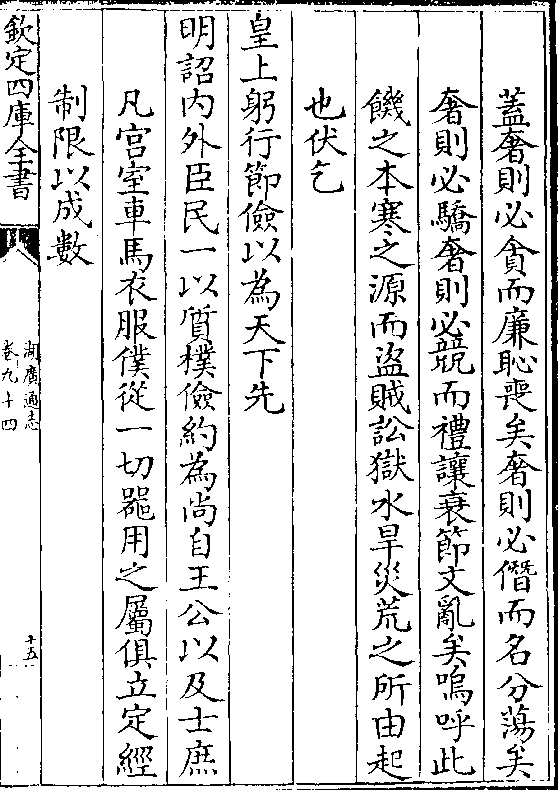 蓋奢則必貪而廉恥喪矣奢則必僭而名分蕩矣
奢則必驕奢則必競而禮讓衰節文亂矣嗚呼此
饑之本寒之源而盜賊訟獄水旱災荒之所由起
也伏乞
皇上躬行節儉以為天下先
明詔内外臣民一以質樸儉約為尚自王公以及士庶
凡宫室車馬衣服僕從一切器用之屬俱立定經
制限以成數
欽定四庫全書
湖廣通志
卷九十四
十五